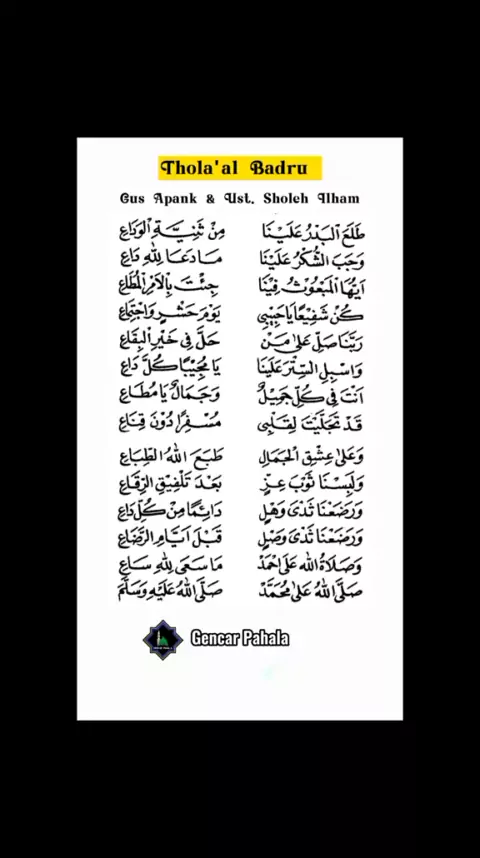 Thola'al Badru
Gus Apank & Ust. Sholeh Ilham
طَلَعَ الْبَدْرُ عَلَيْنَا مِنْ ثَنِيَّةِ الْوَدَاعِ
وَجَبَ الشُّكْرُ عَلَيْنَا مَا دَعَا لِلّٰهِ دَاعِ
اَيُّهَا الْمَبْعُوْثُ فِيْنَا جِئْتَ بِالْاَمْرِ الْمُطَاعِ
كُنْ شَفِيْعًا يَا حَبِيْبِى يَوْمَ حَشْرٍ وَاجْتِمَاعِ
رَبَّنَا صَلِّ عَلٰى مَنْ حَلَّ فِى خَيْرِ الْبِقَاعِ
وَاسْبِلِ السِّتْرَ عَلَيْنَا يَا مُجِيْبًا كُلَّ دَاعِ
اَنْتَ فِى كُلِّ جَمِيْلٌ وَجَمَالٌ يَا مُطَاعِ
قَدْ تَجَلَّيْتَ لِقَلْبِى مُسْفِرًا دُوْنَ قِنَاعِ
وَعَلٰى عِشْقِ الْجَمَالِ طَبَعَ اللّٰهُ الطِّبَاعِ
وَلَبِسْنَا ثَوْبَ عِزٍّ بَعْدَ تَلْفِيْقِ الرِّقَاعِ
وَرَضَعْنَا ثَدْىَ وَهْلٍ دَائِمًا مِنْ كُلِّ دَاعِ
وَرَضَعْنَا ثَدْىَ وَصْلٍ قَبْلَ اَيَّامِ الرَّضَاعِ
وَصَلَاةُ اللّٰهِ عَلٰى اَحْمَدْ مَا سَعٰى لِلّٰهِ سَاعِ
صَلَّى اللّٰهُ عَلٰى مُحَمَّدْ صَلَّى اللّٰهُ عَلَيْهِ وَسَلَّمَ
Gencar Pahala